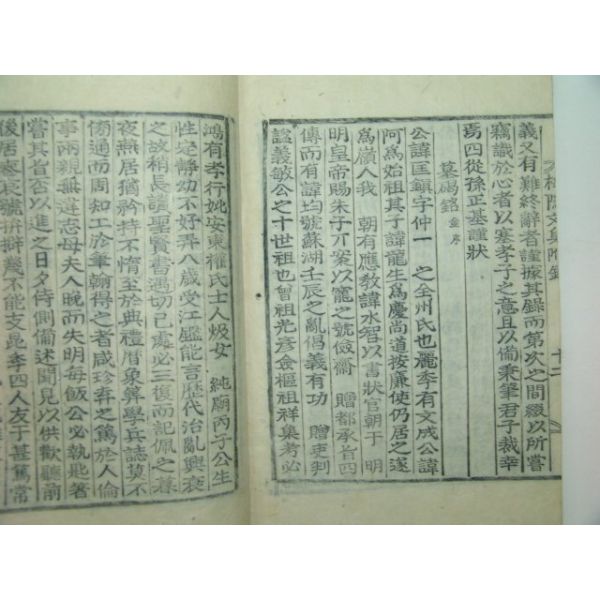 義又有難終辭者謹據其錄而第次之間綴以所嘗
竊識於心者以塞孝子之意且以備秉筆君子裁幸
焉四從孫正基謹狀
墓碣銘 並序
公諱匡鎭字仲一 之全州氏也麗季有文成公諱
阿爲始祖其子諱龍生爲慶尚道按廉使仍居之遂
爲嶺人我 朝有應敎諱水智以書狀官朝于 明
明皇帝賜朱子 以寵之號儉齋 贈都承旨四
傳而有諱均號蘇湖壬辰之亂倡義有功 贈吏判
諡義敏公之十世祖也曾祖光彦僉樞祖祥集考必
鴻有孝行妣安東權氏士人 女 純廟丙子公生
性定靜幼不好弄八歲受江鑑能言歷代治亂興衰
之故稍長讀聖賢書遇切己處必三復而記佩之暮
夜燕居猶矜持不惰至於典禮曆象算學兵誌莫不
傍通而周知工於筆翰得之者咸珍弆之篤於人倫
事兩親無違志母夫人晚而失明每飯公必執匙箸
嘗其旨否以進之日夕侍側備述聞見以供歡聽前
後居喪哀號擗踊幾不能支昆季四人友于甚篤常
文集附錄
十二